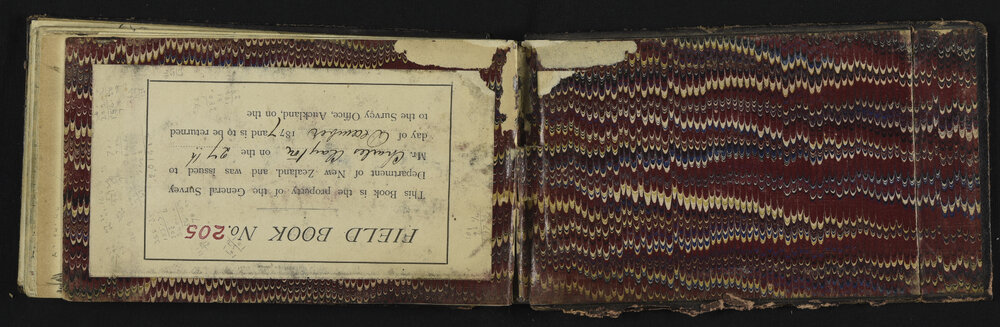 FIELD BOOK No. 205
This Book is the property of the General Survey
Department of New Zealand, and was issued to
Mr. Charles Clayton on the 27th
day of December 1877 and is to be returned
to the Survey Office, Auckland, on the